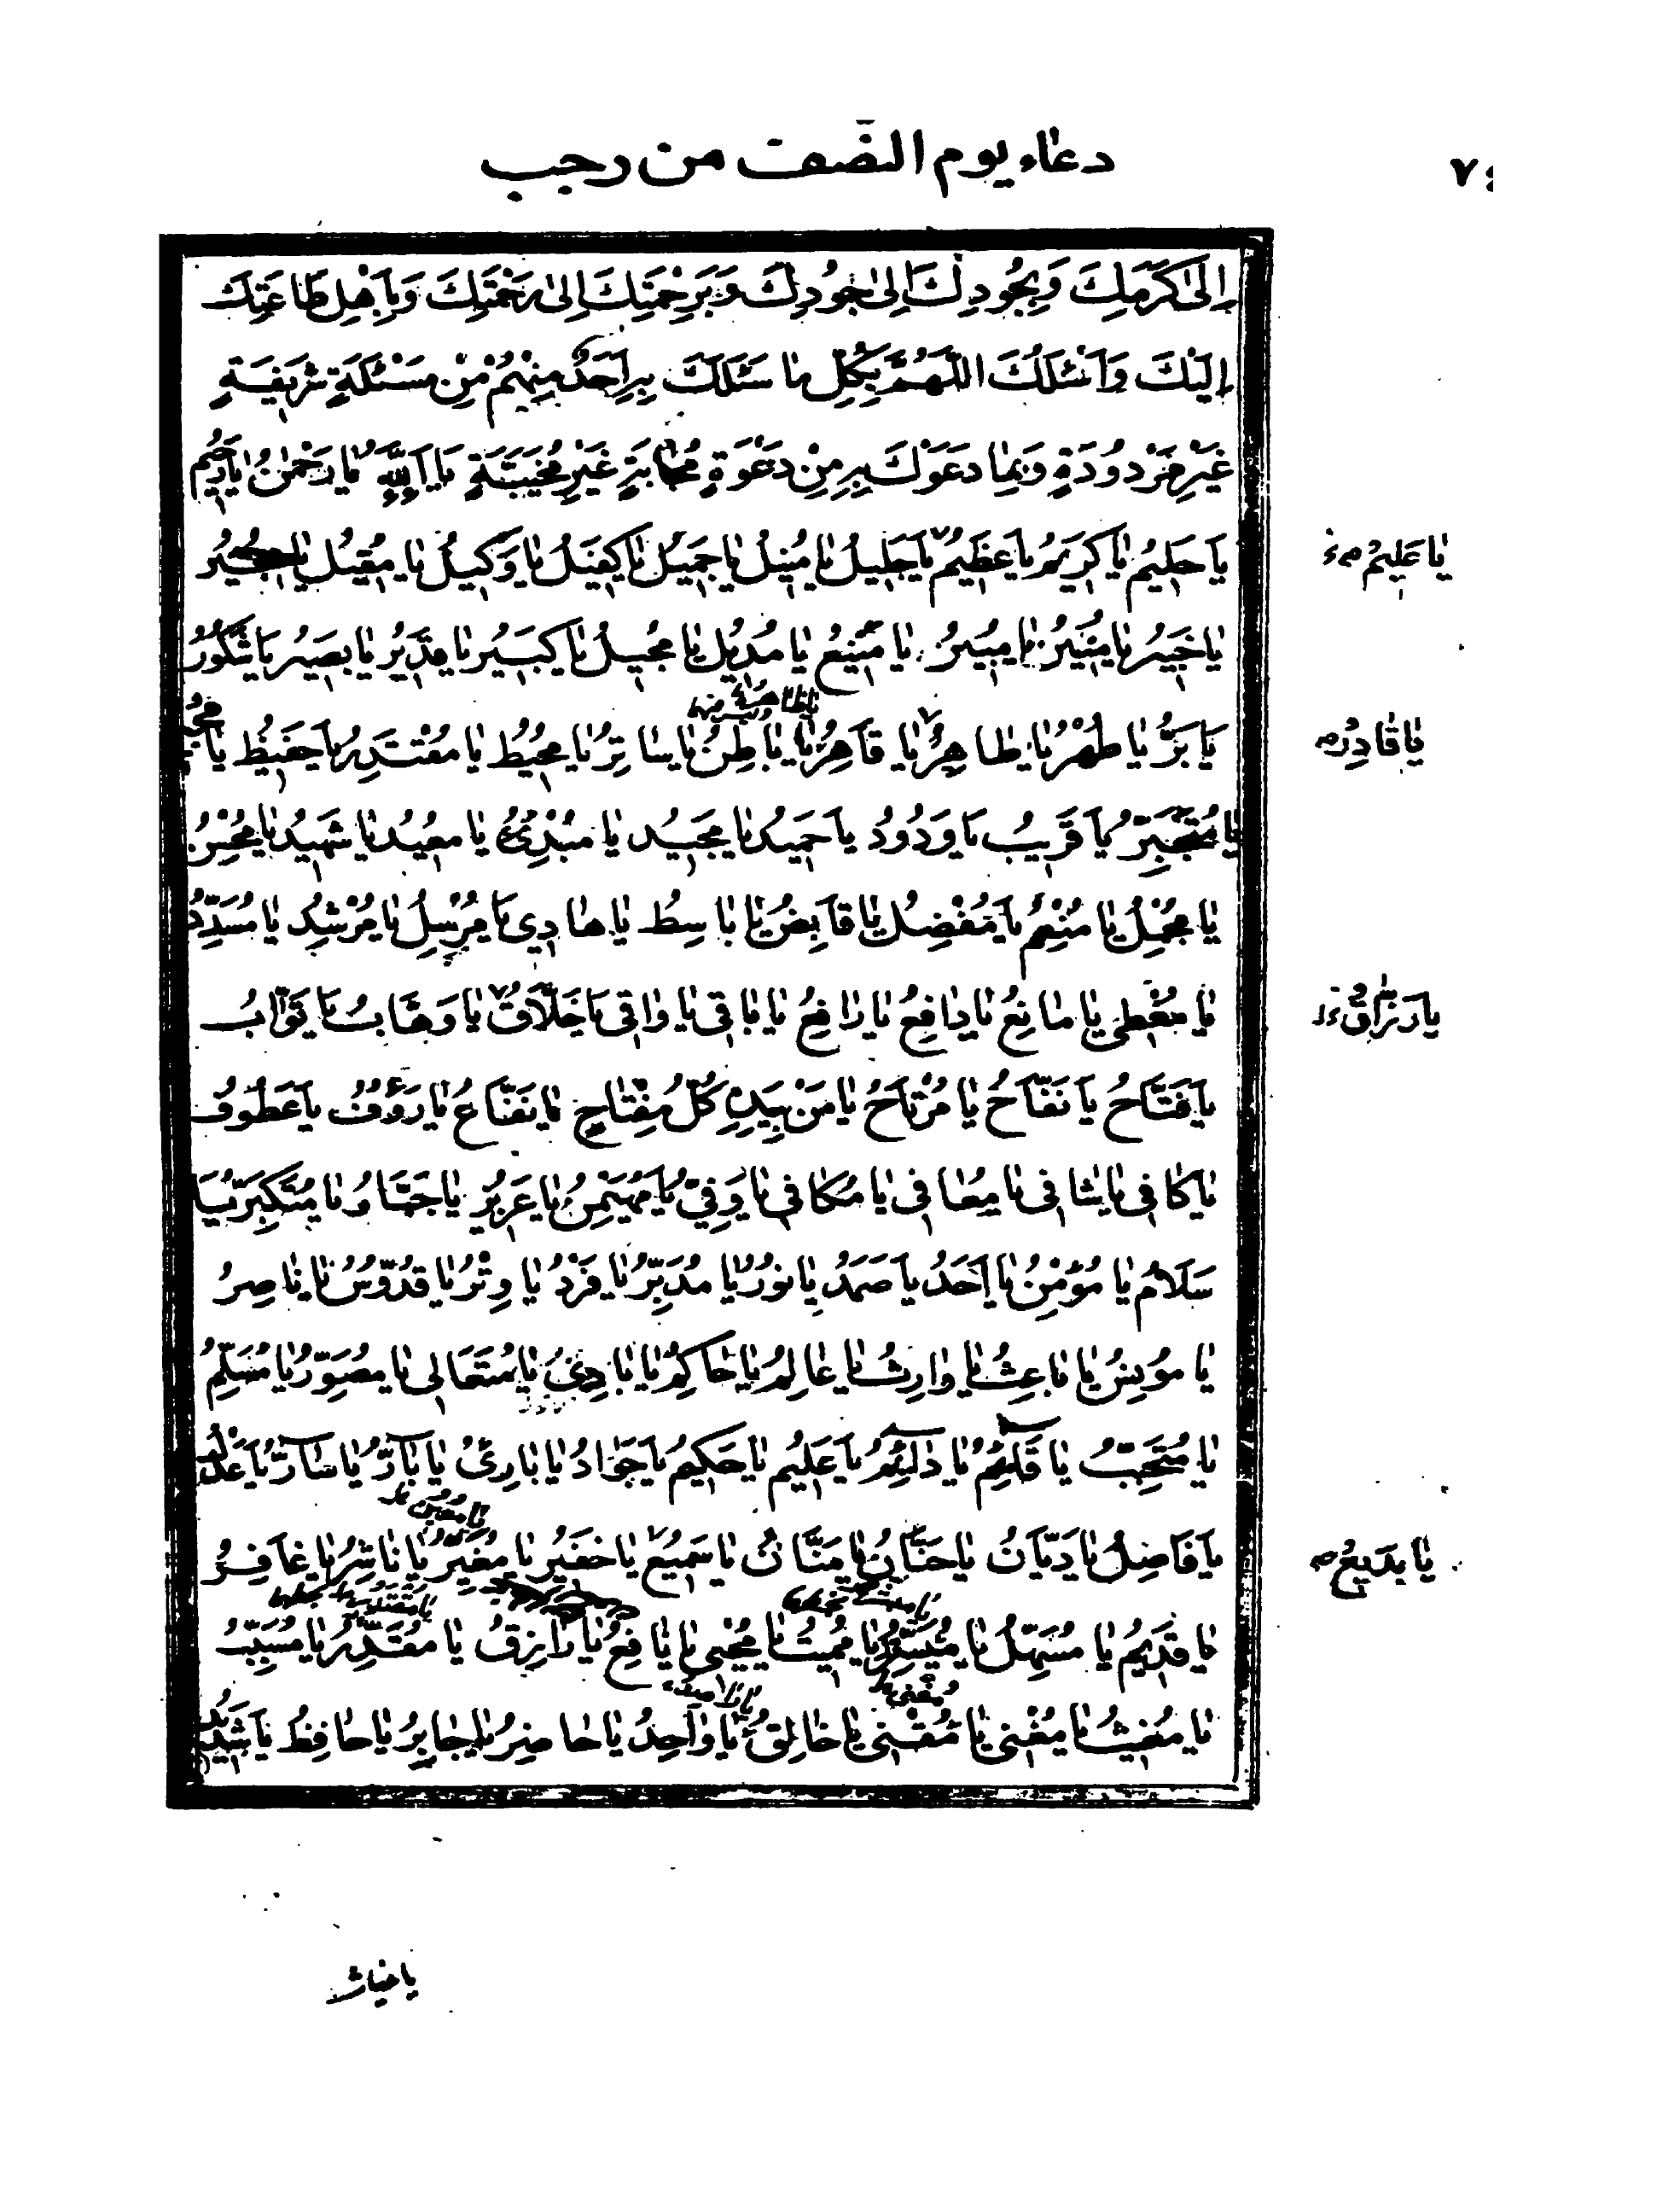 دعاء يوم النصف من رجب
إِلىٰ كَرَمِكَ وَبِجُودِكَ إِلىٰ جُودِكَ وَبِرَحْمَتِكَ إِلىٰ رَحْمَتِكَ وَبِأَهْلِ طَاعَتِكَ
إِلَيْكَ وَأَسْئَلُكَ اللّٰهُمَّ بِكُلِّ مٰا سَئَلَكَ بِهِ أَحَدٌ مِنْهُمْ مِنْ مَسْئَلَةٍ شَرِيفَةٍ
غَيْرِ مَرْدُودَةٍ وَبِمٰا دَعَوْكَ بِهِ مِنْ دَعْوَةٍ مُجٰابَةٍ غَيْرِ مُخَيَّبَةٍ يٰا اَللّٰهُ يٰا رَحْمٰنُ يٰا رَحِيمُ
يٰا حَلِيمُ يٰا كَرِيمُ يٰا عَظِيمُ يٰا جَلِيلُ يٰا مُنِيلُ يٰا جَمِيلُ يٰا كَفِيلُ يٰا وَكِيلُ يٰا مُقِيلُ يٰا مُجِيرُ
يٰا عَلِيمُ
يٰا خَبِيرُ يٰا مُنِيرُ يٰا مُبِيرُ يٰا مَنِيعُ يٰا مُدِيلُ يٰا مُحِيلُ يٰا كَبِيرُ يٰا قَدِيرُ يٰا بَصِيرُ يٰا شَكُورُ
يٰا بَرُّ يٰا طُهْرُ يٰا طٰاهِرُ يٰا قٰاهِرُ يٰا بٰاطِنُ يٰا سٰاتِرُ يٰا مُحِيطُ يٰا مُقْتَدِرُ يٰا حَفِيظُ يٰا
يٰا قٰادِرُ
يٰا مُتَجَبِّرُ يٰا قَرِيبُ يٰا وَدُودُ يٰا حَمِيدُ يٰا مَجِيدُ يٰا مُبْدِئُ يٰا مُعِيدُ يٰا شَهِيدُ يٰا مُحْسِنُ
يٰا مُجْمِلُ يٰا مُنْعِمُ يٰا مُفْضِلُ يٰا قٰابِضُ يٰا بٰاسِطُ يٰا هٰادِي يٰا مُرْسِلُ يٰا مُرْشِدُ يٰا مُسَدِّدُ
يٰا مُعْطِي يٰا مٰانِعُ يٰا دٰافِعُ يٰا رٰافِعُ يٰا بٰاقِي يٰا وٰاقِي يٰا خَلّٰاقُ يٰا وَهّٰابُ يٰا تَوّٰابُ
يٰا رَزّٰاقُ
يٰا فَتّٰاحُ يٰا نَفّٰاحُ يٰا مُرْتٰاحُ يٰا مَنْ بِيَدِهِ كُلُّ مِفْتٰاحٍ يٰا نَفّٰاعُ يٰا رَؤُفُ يٰا عَطُوفُ
يٰا كٰافِي يٰا شٰافِي يٰا مُعٰافِي يٰا مُكٰافِي يٰا وَفِيُّ يٰا مُهَيْمِنُ يٰا عَزِيزُ يٰا جَبّٰارُ يٰا مُتَكَبِّرُ يٰا
سَلٰامُ يٰا مُؤْمِنُ يٰا أَحَدُ يٰا صَمَدُ يٰا نُورُ يٰا مُدَبِّرُ يٰا فَرْدُ يٰا وِتْرُ يٰا قُدُّوسُ يٰا نٰاصِرُ
يٰا مُونِسُ يٰا بٰاعِثُ يٰا وٰارِثُ يٰا عٰالِمُ يٰا حٰاكِمُ يٰا بٰادِئُ يٰا مُتَعٰالِي يٰا مُصَوِّرُ يٰا مُسَلِّمُ
يٰا مُتَحَبِّبُ يٰا قٰائِمُ يٰا دٰائِمُ يٰا عَلِيمُ يٰا حَكِيمُ يٰا جَوٰادُ يٰا بٰارِئُ يٰا بٰارُّ يٰا سٰارُّ يٰا عَدْلُ
يٰا فٰاصِلُ يٰا دَيّٰانُ يٰا حَنّٰانُ يٰا مَنّٰانُ يٰا سَمِيعُ يٰا خَفِيرُ يٰا مُغَيِّرُ يٰا نٰاشِرُ يٰا غٰافِرُ
يٰا بَدِيعُ
يٰا قَدِيمُ يٰا مُسَهِّلُ يٰا مُيَسِّرُ يٰا مُمِيتُ يٰا مُحْيِي يٰا نٰافِعُ يٰا رٰازِقُ يٰا مُقَدِّرُ يٰا مُسَبِّبُ
يٰا مُغِيثُ يٰا مُغْنِي يٰا مُقْنِي يٰا خٰالِقُ يٰا وٰاحِدُ يٰا حٰاضِرُ يٰا جٰابِرُ يٰا حٰافِظُ يٰا شَدِيدُ
يا غياث